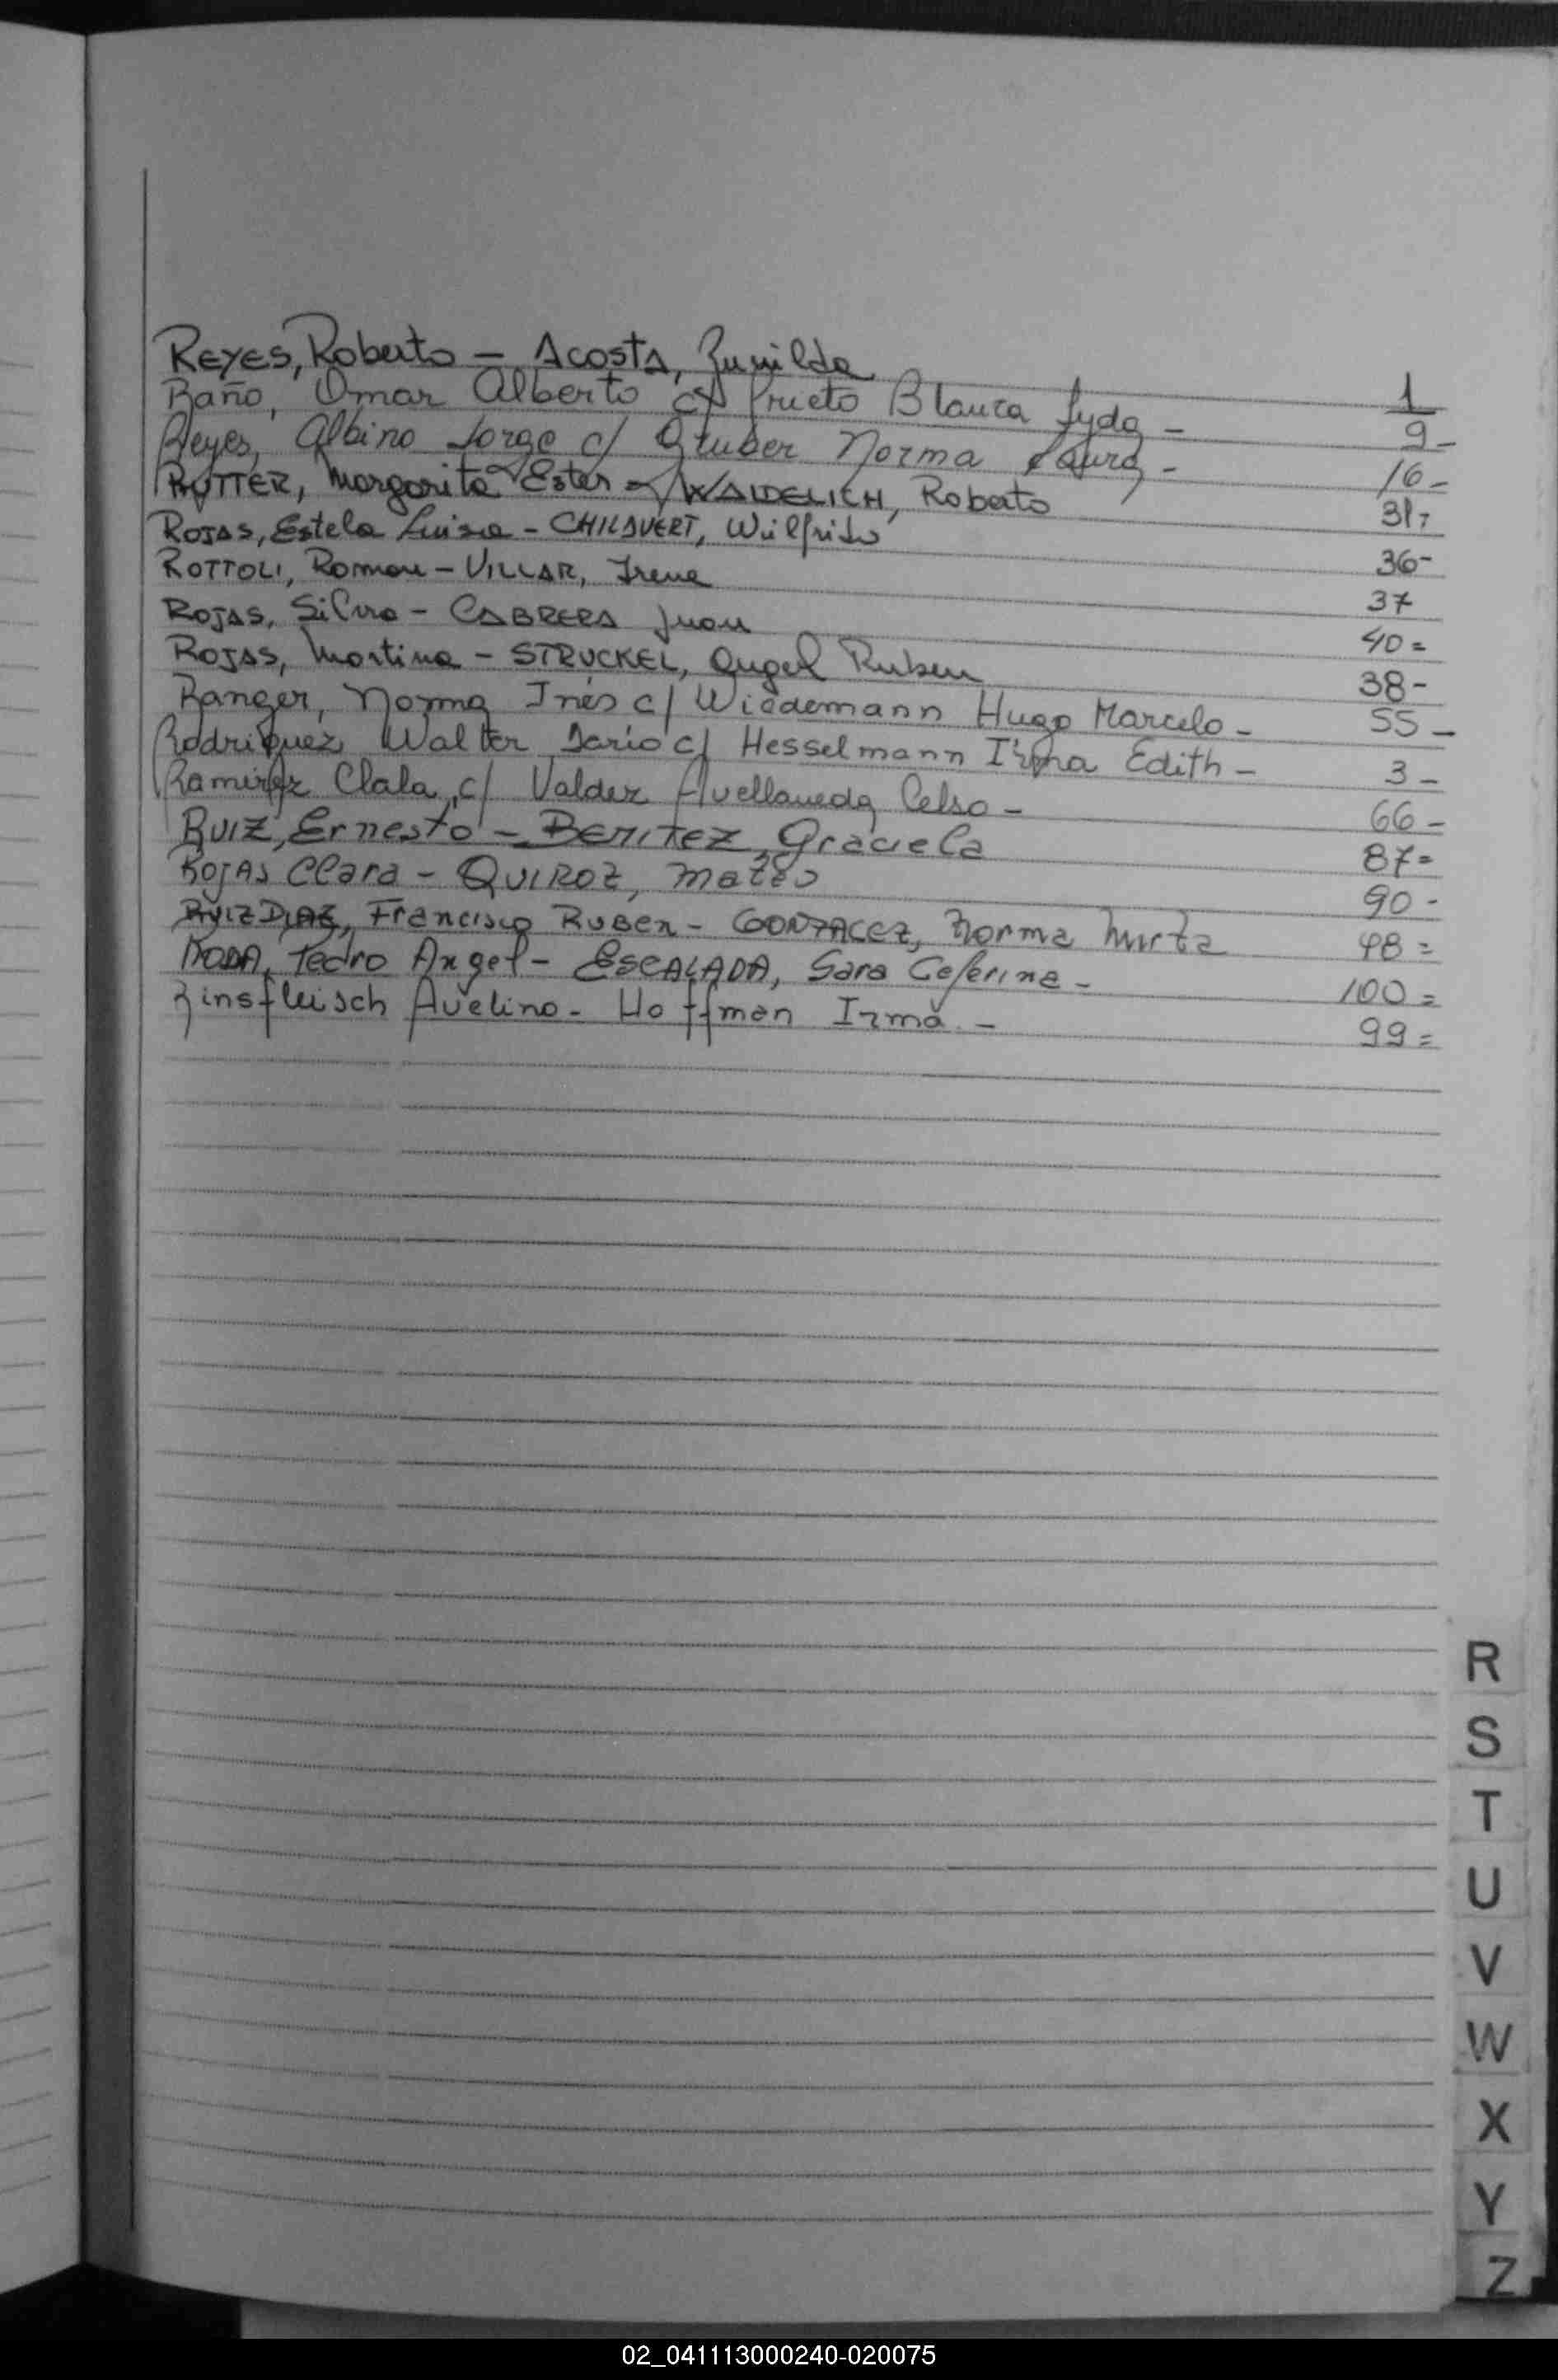 REYES, Roberto - ACOSTA, Zunilda 1
Raño, Omar Alberto c/ Prieto Blanca Lyda - 9-
Reyes, Albino Jorge c/ Gruber Norma Laura - 16-
RUTTER, Margarita Ester - WAIDELICH, Roberto 31-
ROJAS, Estela Luisa - CHILAVERT, Wilfrido 36-
ROTTOLI, Roman - VILLAR, Irene 37
ROJAS, Silvia - CABRERA Juan 40=
ROJAS, Martina - STRUCKEL, Angel Ruben 38-
Ranger, Norma Inés c/ Wiedemann Hugo Marcelo - 55-
Rodriguez Walter Dario c/ Hesselmann Irma Edith - 3-
Ramirez Clala, c/ Valdez Avellaneda Celso - 66-
RUIZ, Ernesto - BENITEZ, Graciela 87=
ROJAS Clara - QUIROZ, Mateo 90-
RUIZ DIAZ, Francisco RUBEN - GONZALEZ, Norma Mirta 48=
RODA, Pedro Angel - ESCALADA, Sara Ceferina - 100=
Rinsfleisch Avelino - Hoffman Irma - 99=
R
S
T
U
V
W
X
Y
Z
02_041113000240-020075